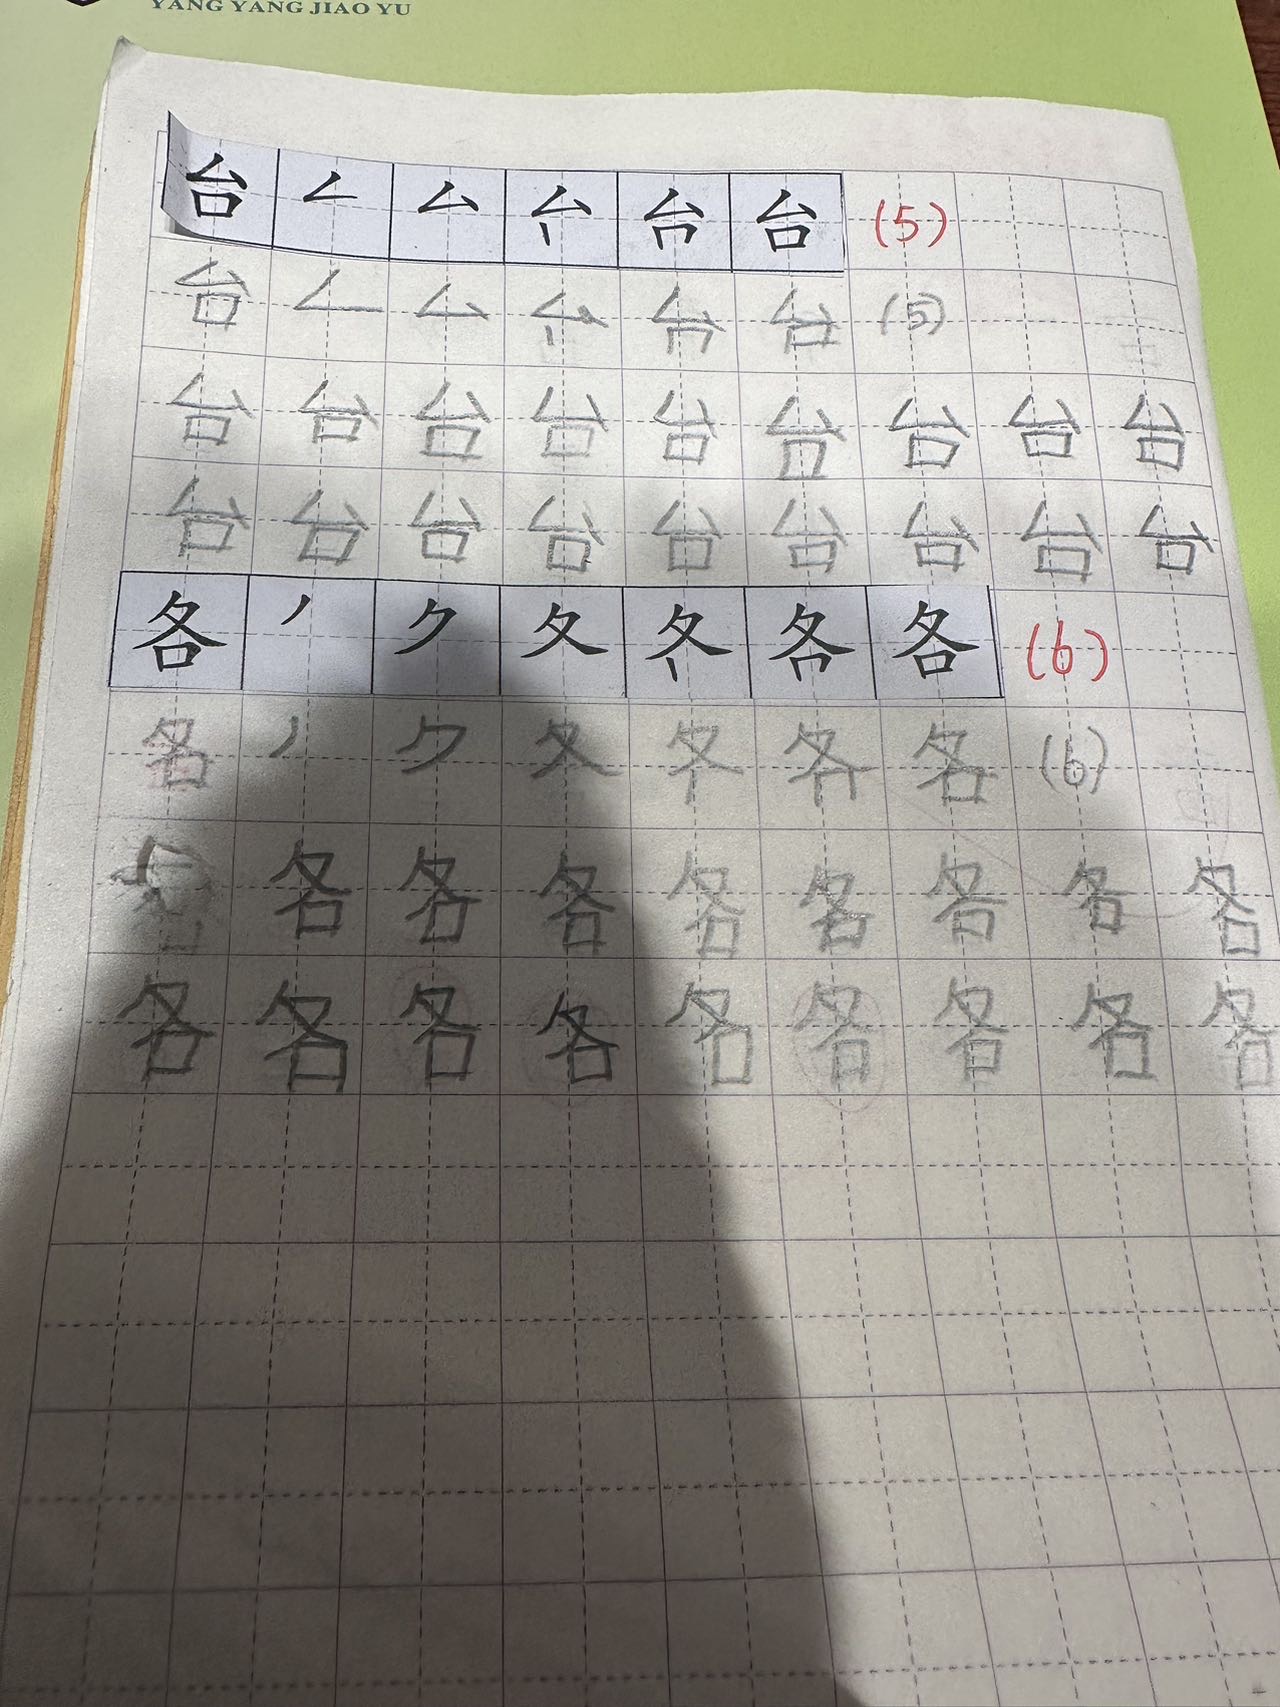 YANG YANG JIAO YU
台 𠃋 厶 台 (5)
台 厶 台 (5)
台 台 台 台 台 台 台 台 台
台 台 台 台 台 台 台 台 台
各 丿 ク 夂 各 (6)
各 丿 ク 夂 各 (6)
各 各 各 各 各 各 各 各
各 各 各 各 各 各 各 各 各